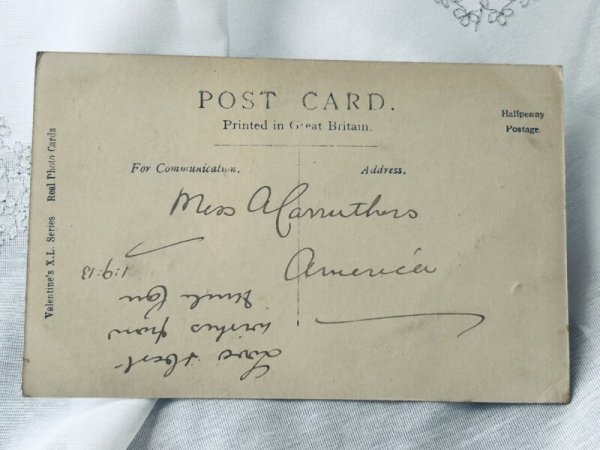 POST CARD.
Printed in Great Britain.
Halfpenny
Postage.
Valentine's X.L. Series Real Photo Cards
For Communication.
Address.
Miss A Carruthers
America
Love & best
wishes from
Uncle
1:9:13